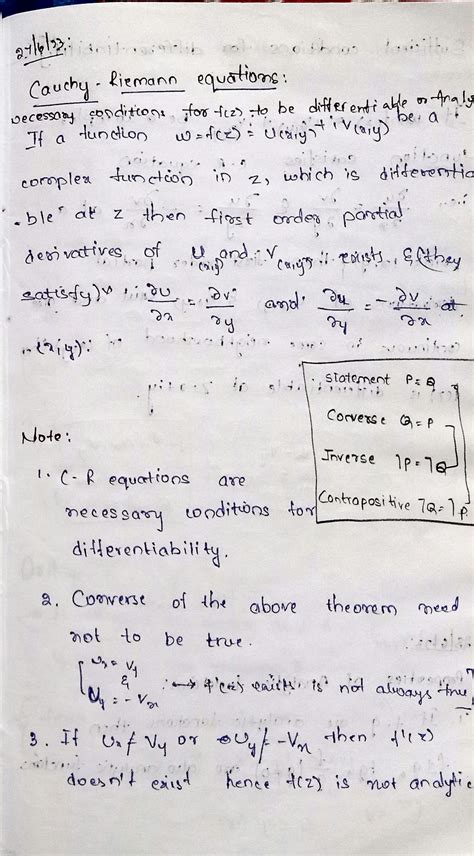 27/6/23:
Cauchy - Riemann equations:
necessary conditions for f(z) to be differentiable or Analy
If a function w = f(z) = u(x,y) + i v(x,y) be a
complex function in z, which is differentia
-ble at z then first order partial
derivatives of U(x,y) and V(x,y) exists & (they
satisfy) ∂u/∂x = ∂v/∂y and ∂u/∂y = -∂v/∂x at
(x,y).
Statement P = Q
Converse Q = P
Inverse ˥P = ˥Q
Contrapositive ˥Q = ˥P
Note:
1. C-R equations are
necessary conditions for
differentiability.
2. Converse of the above theorem need
not to be true.
Ux = Vy
&
Uy = - Vx
→ f'(z) exists is not always true
3. If Ux ≠ Vy or Uy ≠ -Vx then f'(z)
doesn't exist hence f(z) is not analytic